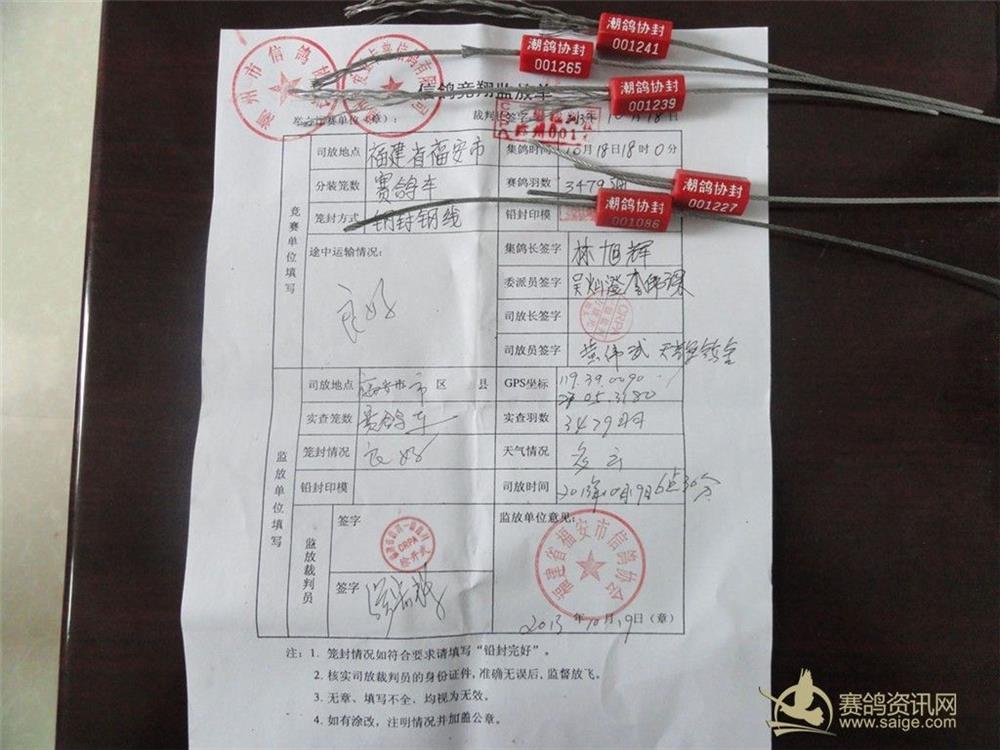 潮鸽协封
001241
潮鸽协封
001265
潮鸽协封
001239
潮鸽协封
001227
潮鸽协封
001086
信鸽竞翔监放单
竞赛单位（章）： 裁判长签字 2013年10月18日
竞赛单位填写
司放地点 福建省福安市 集鸽时间 10月18日18时0分
分装笼数 赛鸽车 赛鸽羽数 3479羽
笼封方式 钢封钢线 铅封印模
途中运输情况： 良好
集鸽长签字 林旭辉
委派员签字
司放长签字
司放员签字
监放单位填写
司放地点 福安市 市 区 县 GPS坐标 119.39.0090
27.05.3180
实查笼数 赛鸽车 实查羽数 3479羽
笼封情况 良好 天气情况 多云
铅封印模 司放时间 2013年10月19日6点30分
监放裁判员
签字
CRPA
签字
监放单位意见：
福建省福安市信鸽协会
2013年10月19日（章）
注：1. 笼封情况如符合要求请填写“铅封完好”。
2. 核实司放裁判员的身份证件，准确无误后，监督放飞。
3. 无章、填写不全，均视为无效。
4. 如有涂改，注明情况并加盖公章。
赛鸽资讯网
www.saige.com